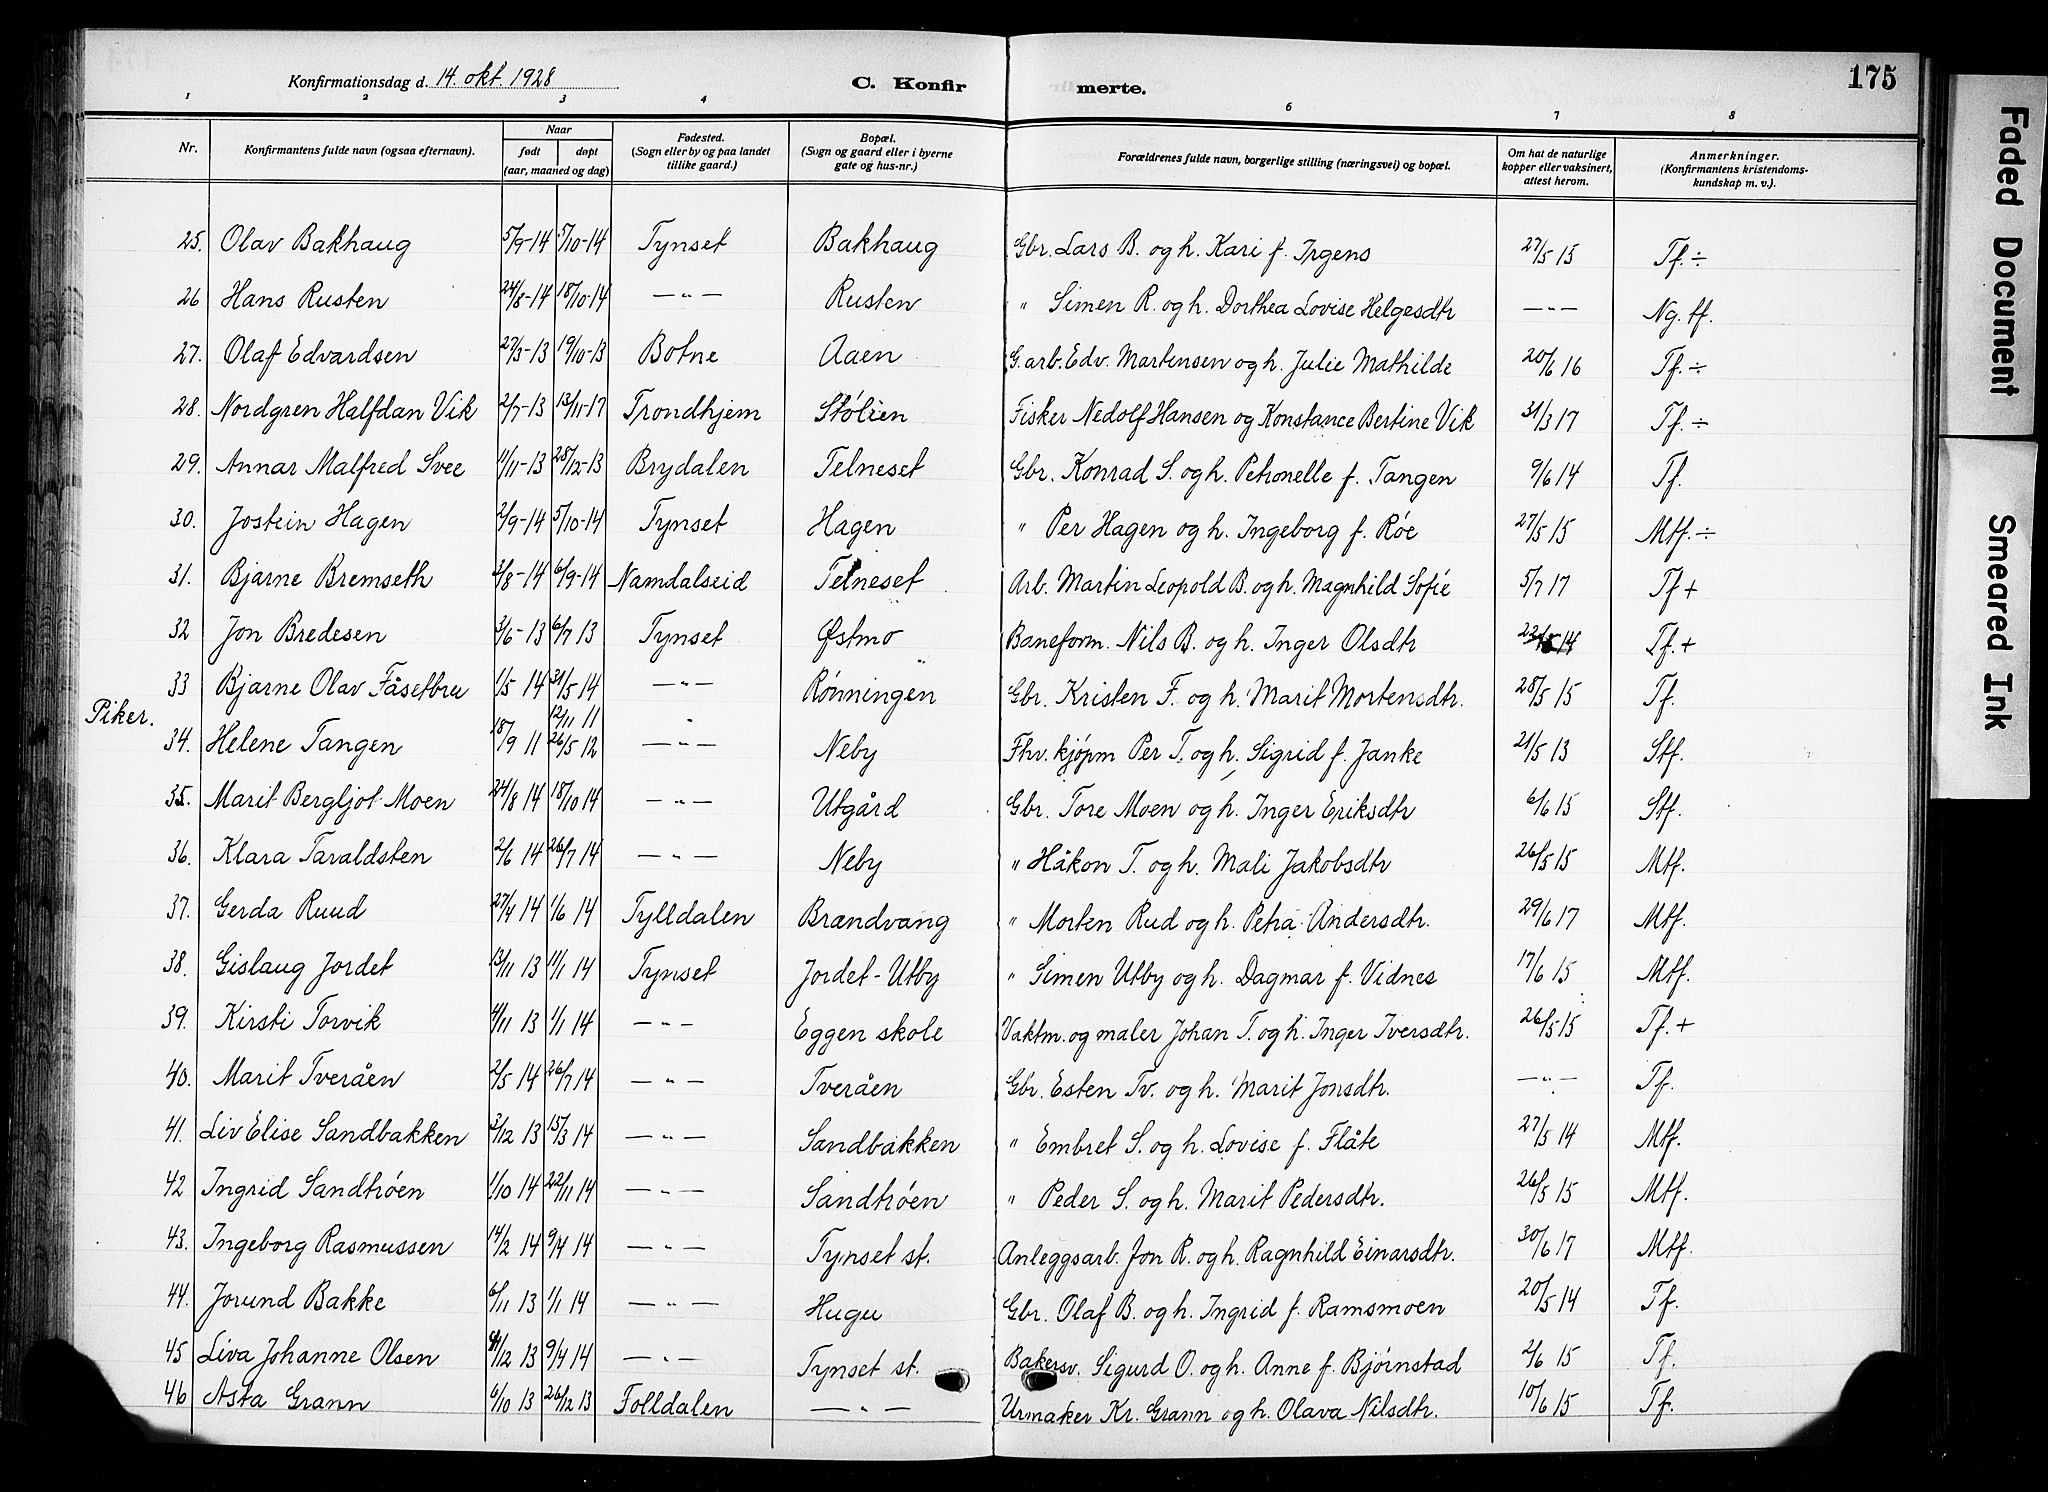 Konfirmationsdag d. 14. okt. 1928
C. Konfirmerte.
175
1 2 3 4 5 6 7 8
Nr. Konfirmantens fulde navn (ogsaa efternavn). Naar født døpt (aar, maaned og dag) Fødested. (Sogn eller by og paa landet tillike gaard.) Bopæl. (Sogn og gaard eller i byerne gate og hus-nr.) Forældrenes fulde navn, borgerlige stilling (næringsvei) og bopæl. Om hat de naturlige kopper eller vaksinert, attest herom. Anmerkninger. (Konfirmantens kristendomskundskap m. v.).
25. Olav Bakhaug 5/9-14 5/10-14 Tynset Bakhaug Gbr. Lars B. og h. Kari f. Irgens 27/5 15 Tf. ÷
26 Hans Rusten 24/8-14 18/10-14 —"— Rusten " Simen R. og h. Dorthea Lovise Helgesdtr —"— Ng. tf.
27. Olaf Edvardsen 27/3-13 19/10-13 Botne Aaen G. arb. Edv. Martensen og h. Julie Mathilde 20/6 16 Tf. ÷
28. Nordgren Halfdan Vik 2/7-13 13/11-17 Trondhjem Stølien Fisker Nedolf Hansen og Konstance Bertine Vik 31/3 17 Tf. ÷
29. Annar Malfred Svee 11/11-13 28/12-13 Brydalen Telneset Gbr. Konrad S. og h. Petronelle f. Tangen 9/6 14 Tf.
30. Jostein Hagen 2/9-14 5/10-14 Tynset Hagen " Per Hagen og h. Ingeborg f. Røe 27/5 15 Mtf. ÷
31. Bjarne Bremseth 3/8-14 6/9-14 Namdalseid Telneset Arb. Martin Leopold B. og h. Magnhild Sofie 5/7 17 Tf +
32 Jon Bredesen 3/6-13 6/7 13 Tynset Østmo Baneform. Nils B. og h. Inger Olsdtr 14 Tf. +
33 Bjarne Olav Fåsetbru 1/5 14 31/5 14 —"— Rønningen Gbr. Kristen F. og h. Marit Mortensdtr. 28/5 15 Tf.
Piker.
34. Helene Tangen 18/9 11 12/11 11 26/5 12 —"— Neby Fhv. kjøpm Per T. og h. Sigrid f. Janke 21/5 13 Stf.
35. Marit Bergljot Moen 24/8 14 18/10 14 —"— Utgård Gbr. Tore Moen og h. Inger Eriksdtr 6/6 15 Stf.
36. Klara Taraldsten 2/6 14 26/7 14 —"— Neby " Håkon T. og h. Mali Jakobsdtr 26/5 15 Mtf.
37. Gerda Ruud 27/4 14 1/6 14 Tylldalen Brændvang " Morten Rud og h. Petra Andersdtr. 29/6 17 Mtf.
38. Gislaug Jordet 13/11 13 11/1 14 Tynset Jordet-Utby " Simen Utby og h. Dagmar f. Vidnes 17/6 15 Mtf.
39. Kirsti Torvik 4/11 13 1/1 14 —"— Eggen skole Vaktm. og maler Johan T. og h. Inger Iversdtr. 26/5 15 Tf. +
40. Marit Tveråen 2/5 14 26/7 14 —"— Tveråen Gbr. Esten Tv. og h. Marit Jonsdtr. —"— Tf.
41. Liv Elise Sandbakken 3/12 13 15/3 14 —"— Sandbakken " Embret S. og h. Lovise f. Flåte 27/5 14 Mtf.
42 Ingrid Sandtrøen 1/10 14 22/11 14 —"— Sandtrøen " Peder S. og h. Marit Pedersdtr. 26/5 15 Mtf.
43. Ingeborg Rasmussen 14/2 14 9/4 14 —"— Tynset st. Anleggsarb. Jon R. og h. Ragnhild Einarsdtr. 30/6 17 Mtf.
44. Jorund Bakke 6/11 13 1/1 14 —"— Hugu Gbr. Olaf B. og h. Ingrid f. Ramsmoen 20/5 14 Tf.
45 Liva Johanne Olsen /12 13 9/4 14 —"— Tynset st. Bakersv. Sigurd O. og h. Anne f. Bjørnstad 2/6 15 Tf.
46 Asta Grann 6/10 13 26/12 13 Folldalen —"— Urmaker Kr. Grann og h. Olava Nilsdtr. 10/6 15 Tf.
Faded Document
Smeared Ink